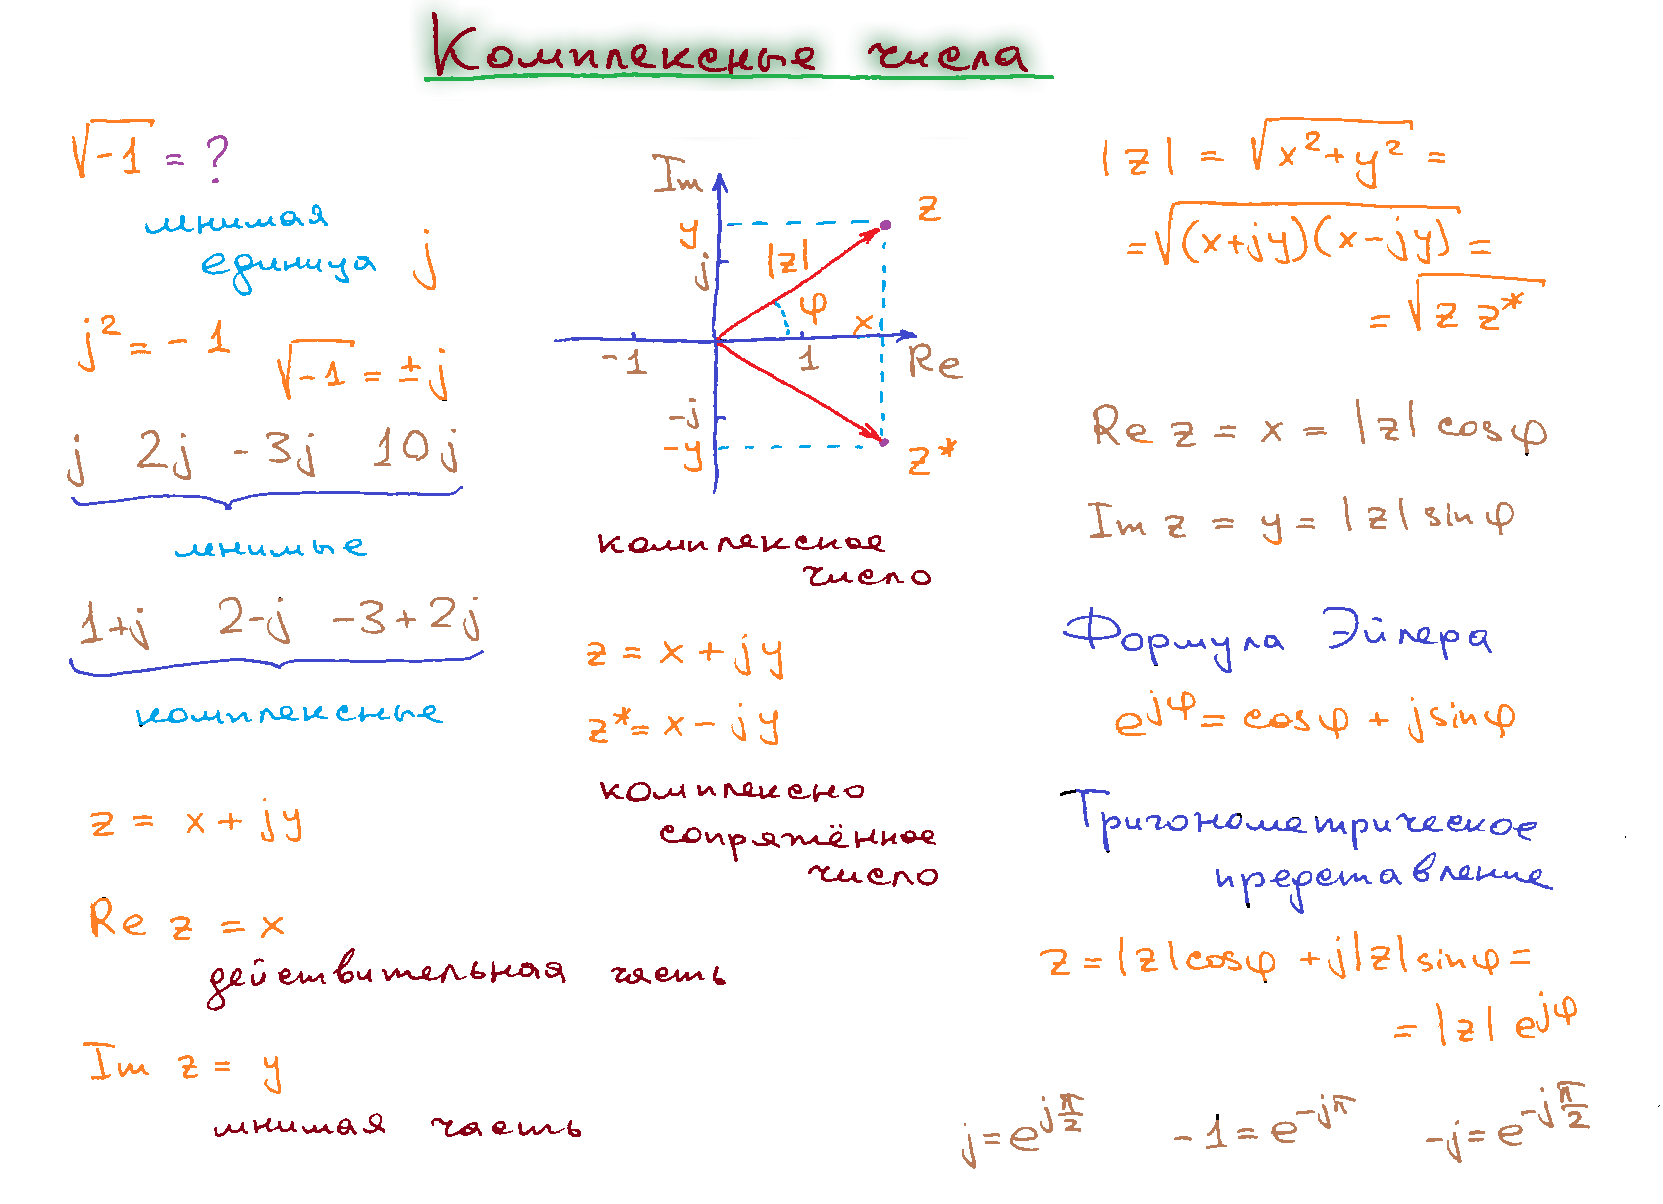 Комплексные числа
√-1 = ?
мнимая
единица j
j² = - 1
√-1 = ± j
j 2j - 3j 10j
мнимые
1+j 2-j -3+2j
комплексные
z = x + jy
Re z = x
действительная часть
Im z = y
мнимая часть
Im
y
j
|z|
φ
z
x
-1
1
Re
-j
-y
z*
комплексное
число
z = x + jy
z* = x - jy
комплексно
сопряжённое
число
|z| = √x²+y² =
= √(x+jy)(x-jy) =
= √z z*
Re z = x = |z| cosφ
Im z = y = |z| sinφ
Формула Эйлера
e^jφ = cosφ + jsinφ
Тригонометрическое
представление
z = |z|cosφ + j|z|sinφ =
= |z| e^jφ
j = e^jπ/2 -1 = e^-jπ -j = e^-jπ/2